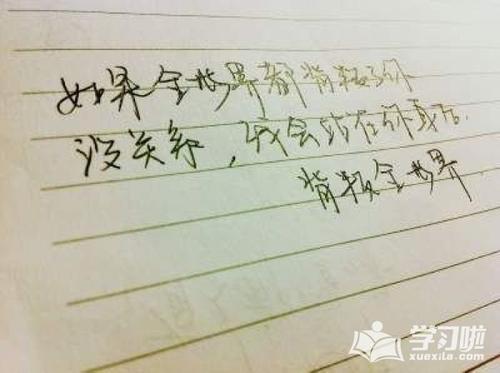 如果全世界都背叛了你
没关系，我会站在你身后
背叛全世界
学习啦
xuexila.com